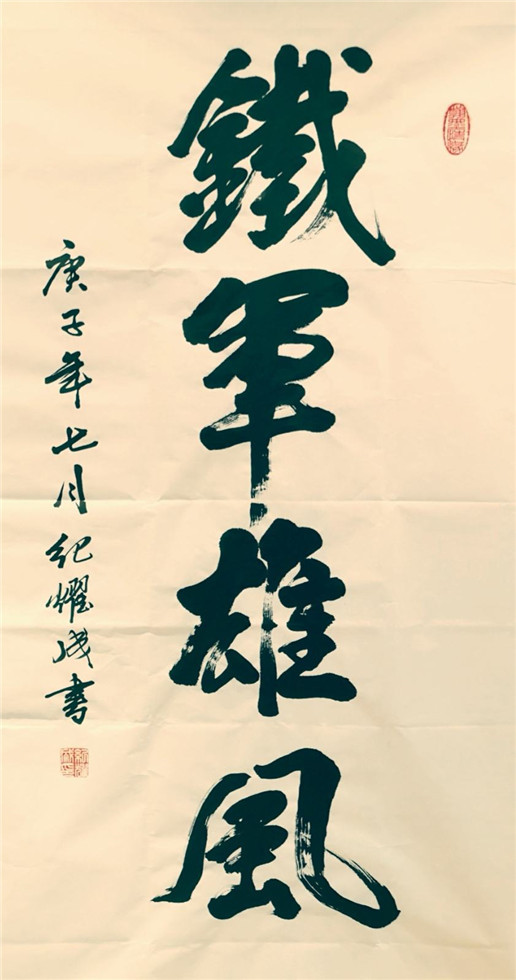 鐵軍雄風
庚子年七月紀耀成書